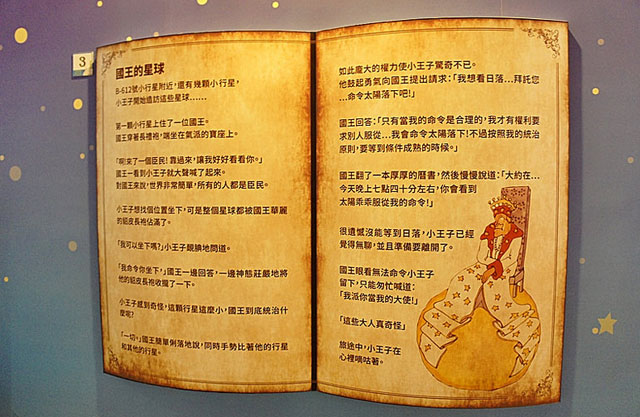 3
國王的星球
B-612號小行星附近，還有幾顆小行星，
小王子開始造訪這些星球……
第一顆小行星上住了一位國王。
國王穿著長禮袍，端坐在氣派的寶座上。
「啊!來了一個臣民!靠過來，讓我好好看看你。」
國王一看到小王子就大聲喊了起來。
對國王來說，世界非常簡單，所有的人都是臣民。
小王子想找個位置坐下，可是整個星球都被國王華麗
的貂皮長袍佔滿了。
「我可以坐下嗎?」小王子靦腆地問道。
「我命令你坐下，」國王一邊回答，一邊神態莊嚴地將
他的貂皮長袍收攏了一下。
小王子感到奇怪，這顆行星這麼小，國王到底統治什
麼呢?
「一切。」國王簡單俐落地說，同時手勢比著他的行星
和其他的行星。
如此龐大的權力使小王子驚奇不已。
他鼓起勇氣向國王提出請求：「我想看日落…拜託您
…命令太陽落下吧!」
國王回答：「只有當我的命令是合理的，我才有權利要
求別人服從…我會命令太陽落下!不過按照我的統治
原則，要等到條件成熟的時候。」
國王翻了一本厚厚的曆書，然後慢慢說道：「大約在…
今天晚上七點四十分左右，你會看到
太陽乖乖服從我的命令!」
很遺憾沒能等到日落，小王子已經
覺得無聊，並且準備要離開了。
國王眼看無法命令小王子
留下，只能匆忙喊道：
「我派你當我的大使!」
「這些大人真奇怪」
旅途中，小王子在
心裡嘀咕著。